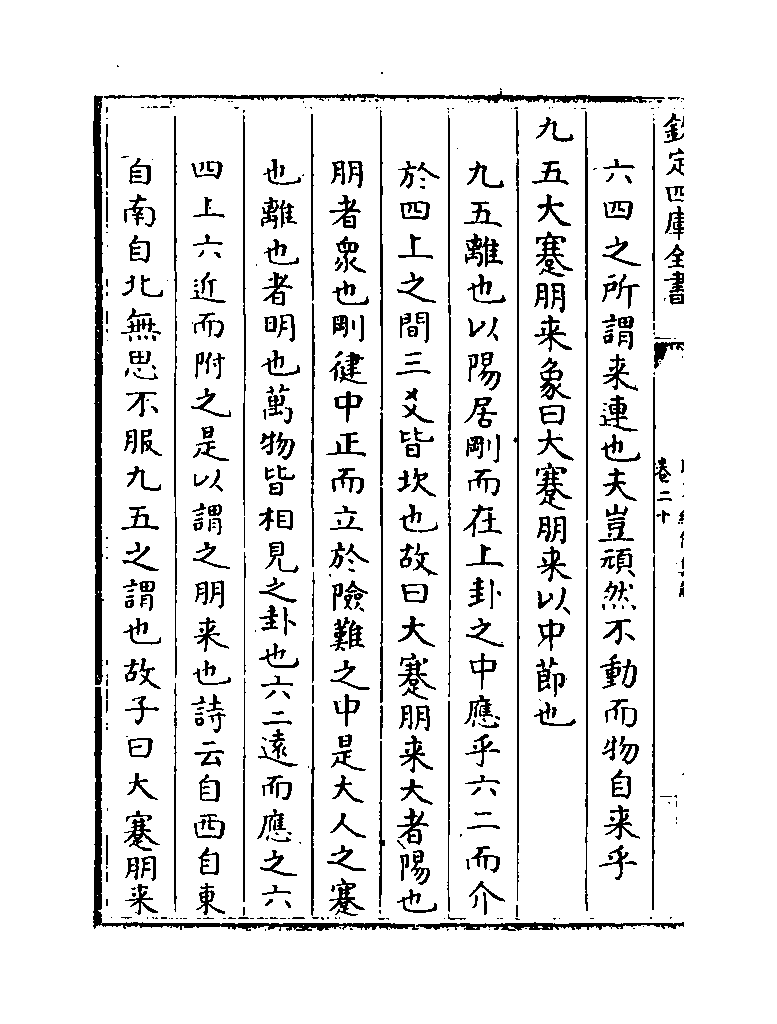 欽定四庫全書
卷二十
六四之所謂来連也夫豈頑然不動而物自来乎
九五大蹇朋来象曰大蹇朋来以中節也
九五離也以陽居剛而在上卦之中應乎六二而介
於四上之間三爻皆坎也故曰大蹇朋来大者陽也
朋者衆也剛健中正而立於險難之中是大人之蹇
也離也者明也萬物皆相見之卦也六二遠而應之六
四上六近而附之是以謂之朋来也詩云自西自東
自南自北無思不服九五之謂也故子曰大蹇朋来